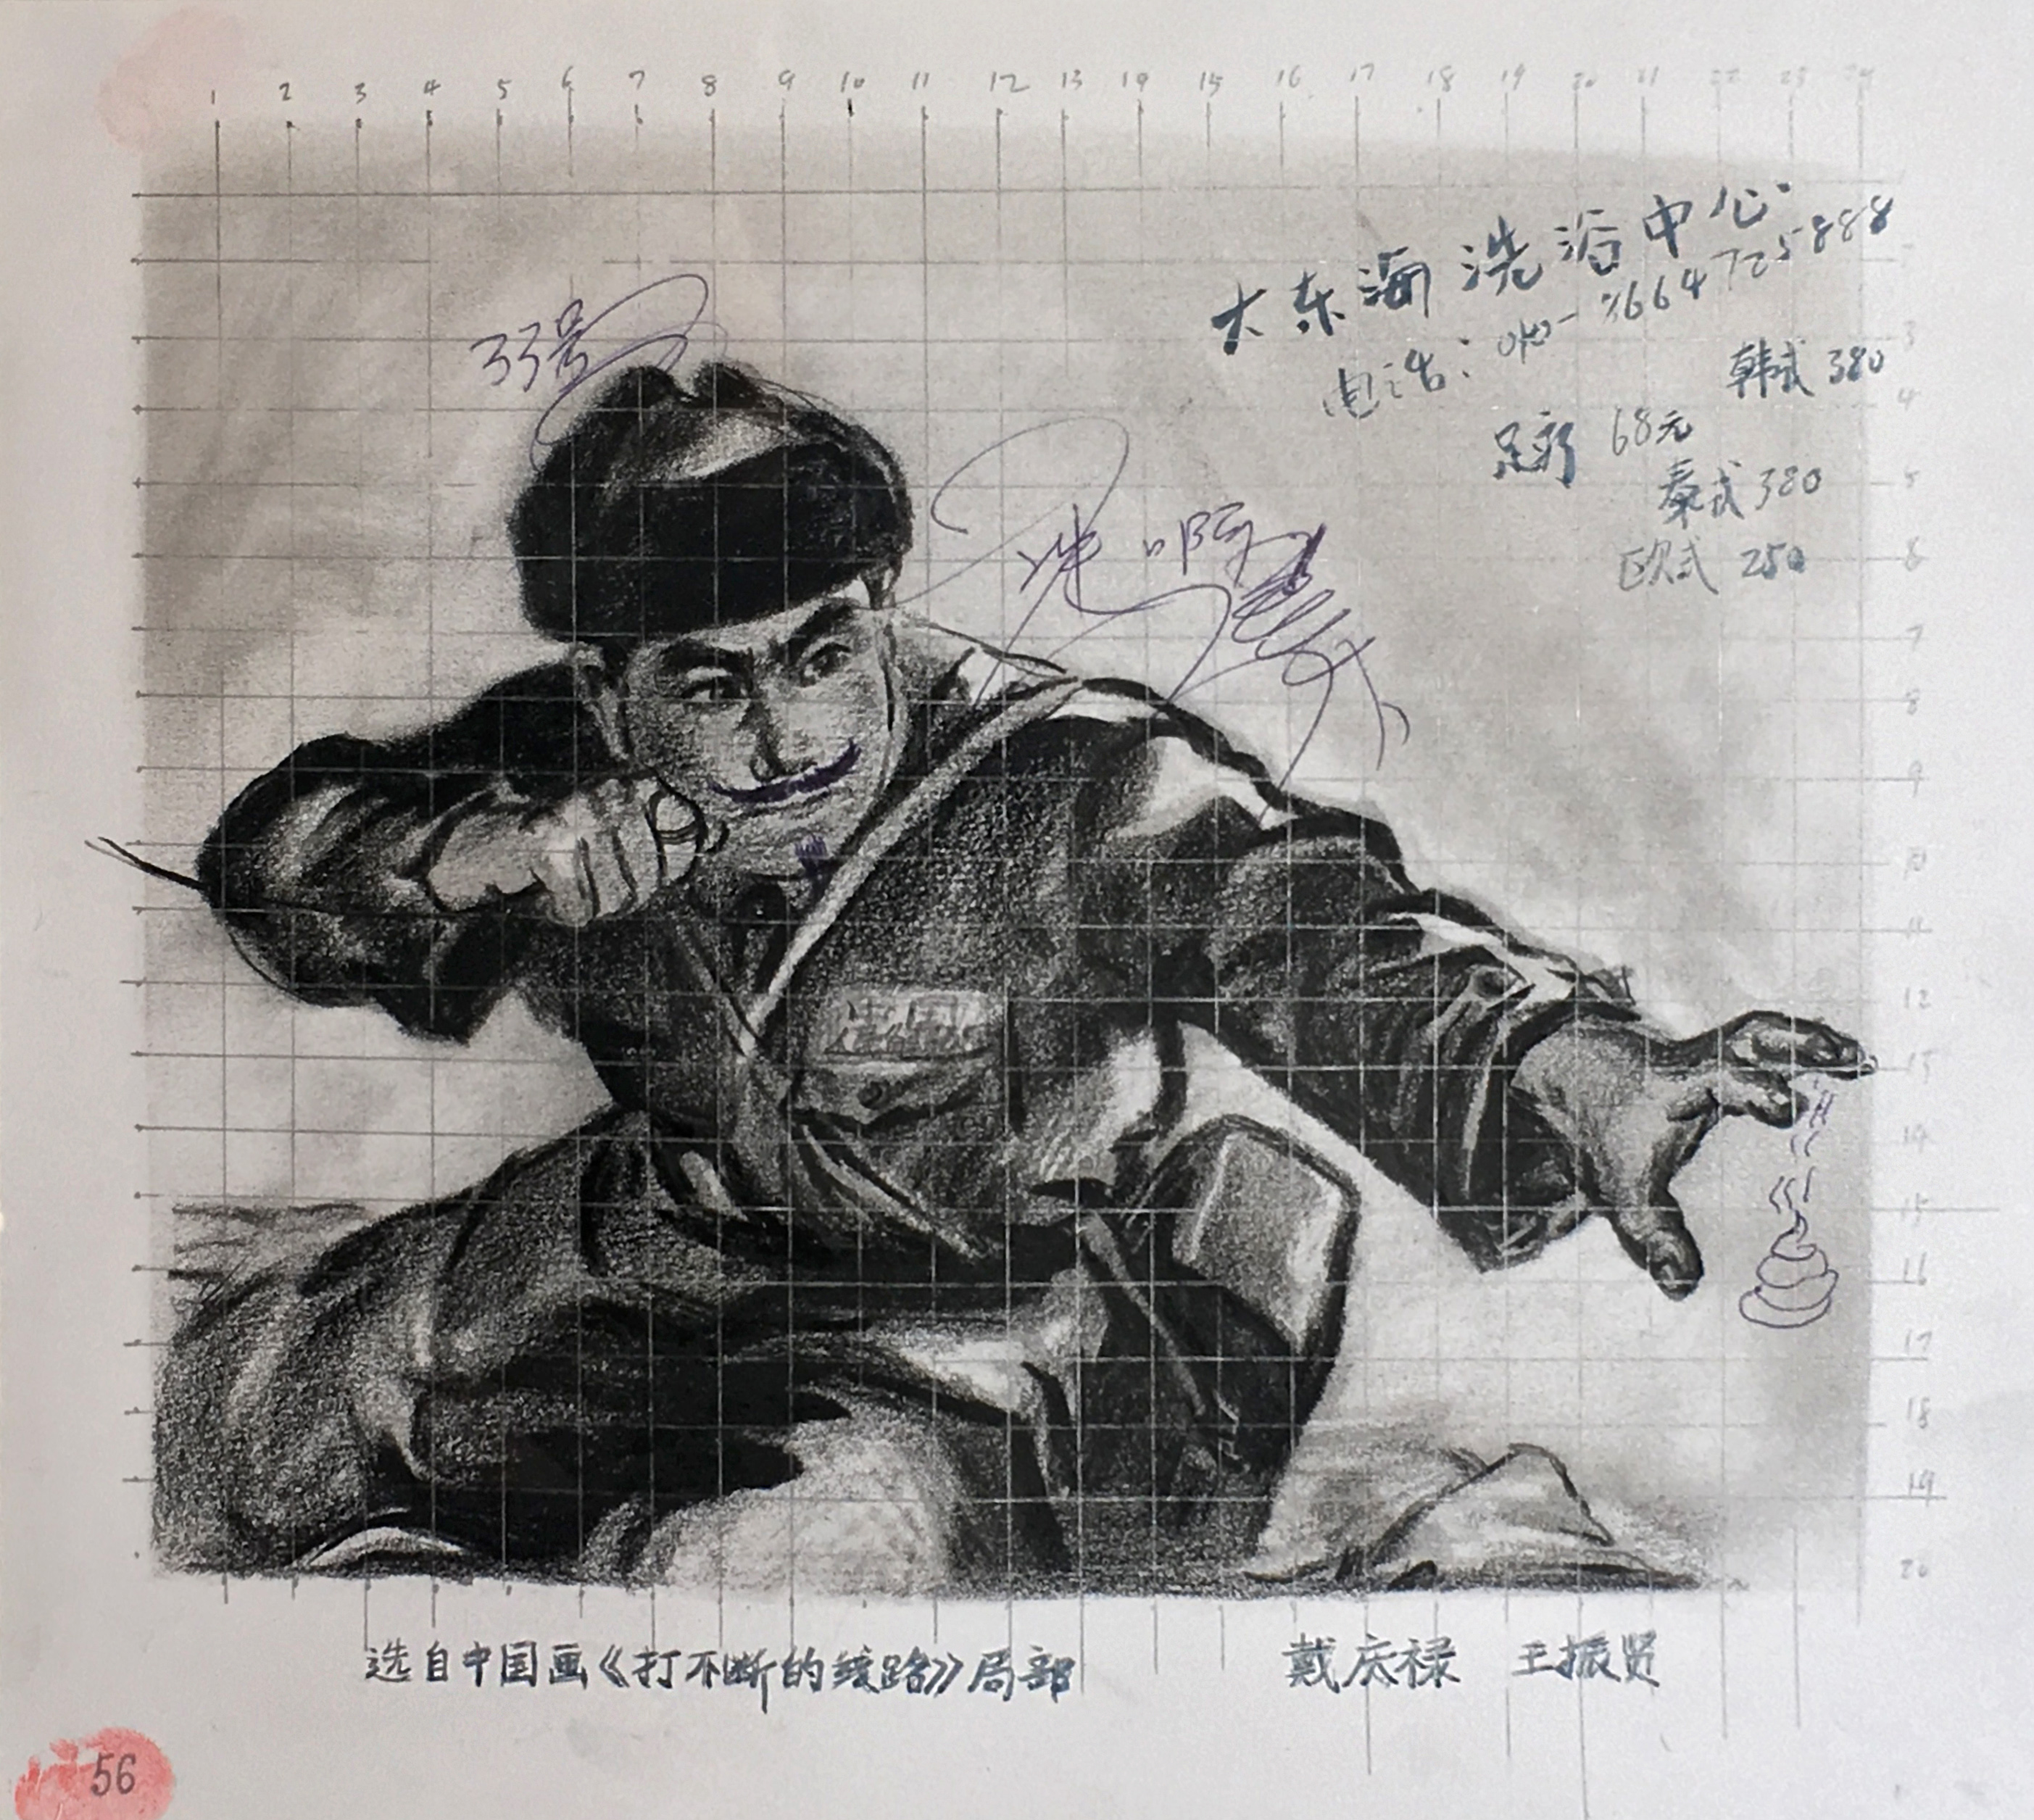 1 2 3 4 5 6 7 8 9 10 11 12 13 14 15 16 17 18 19 20 21 22 23 24
大东海洗浴中心
电话: 725888
33号
韩式 380
足疗 68元
泰式 380
欧式 250
3
4
5
6
7
8
9
10
11
12
13
14
15
16
17
18
19
20
选自中国画《打不断的线路》局部 戴庆禄 王振贤
56